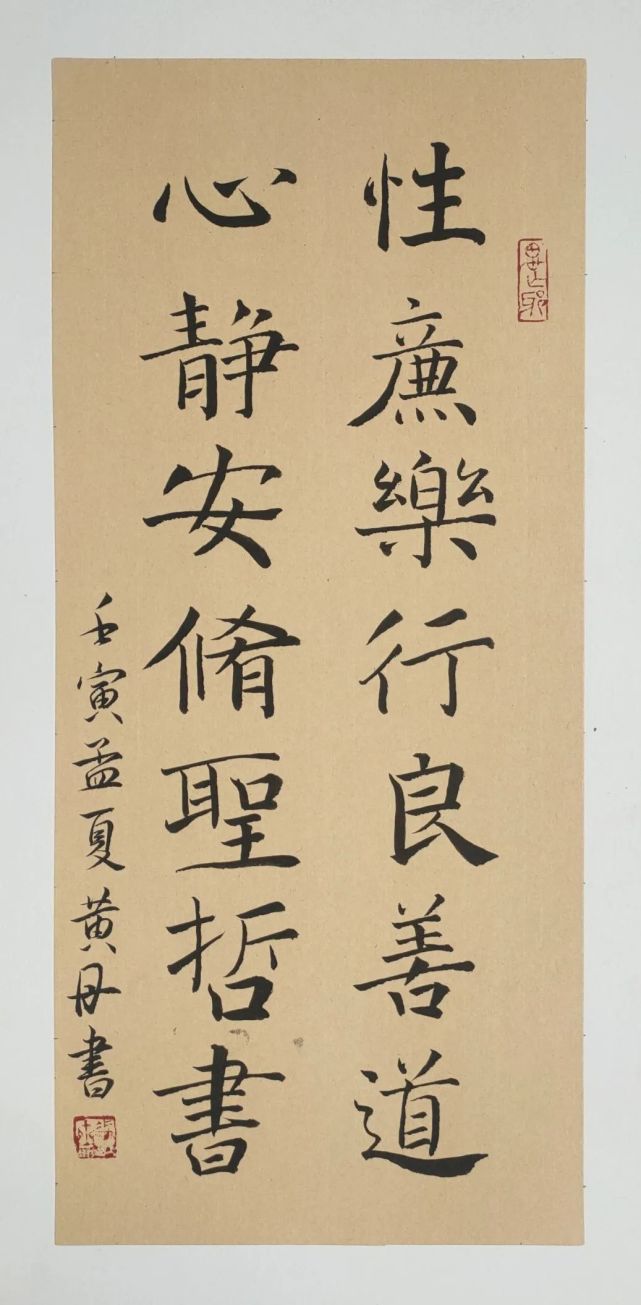 性廉樂行良善道
心静安脩聖哲書
壬寅孟夏黄丹書